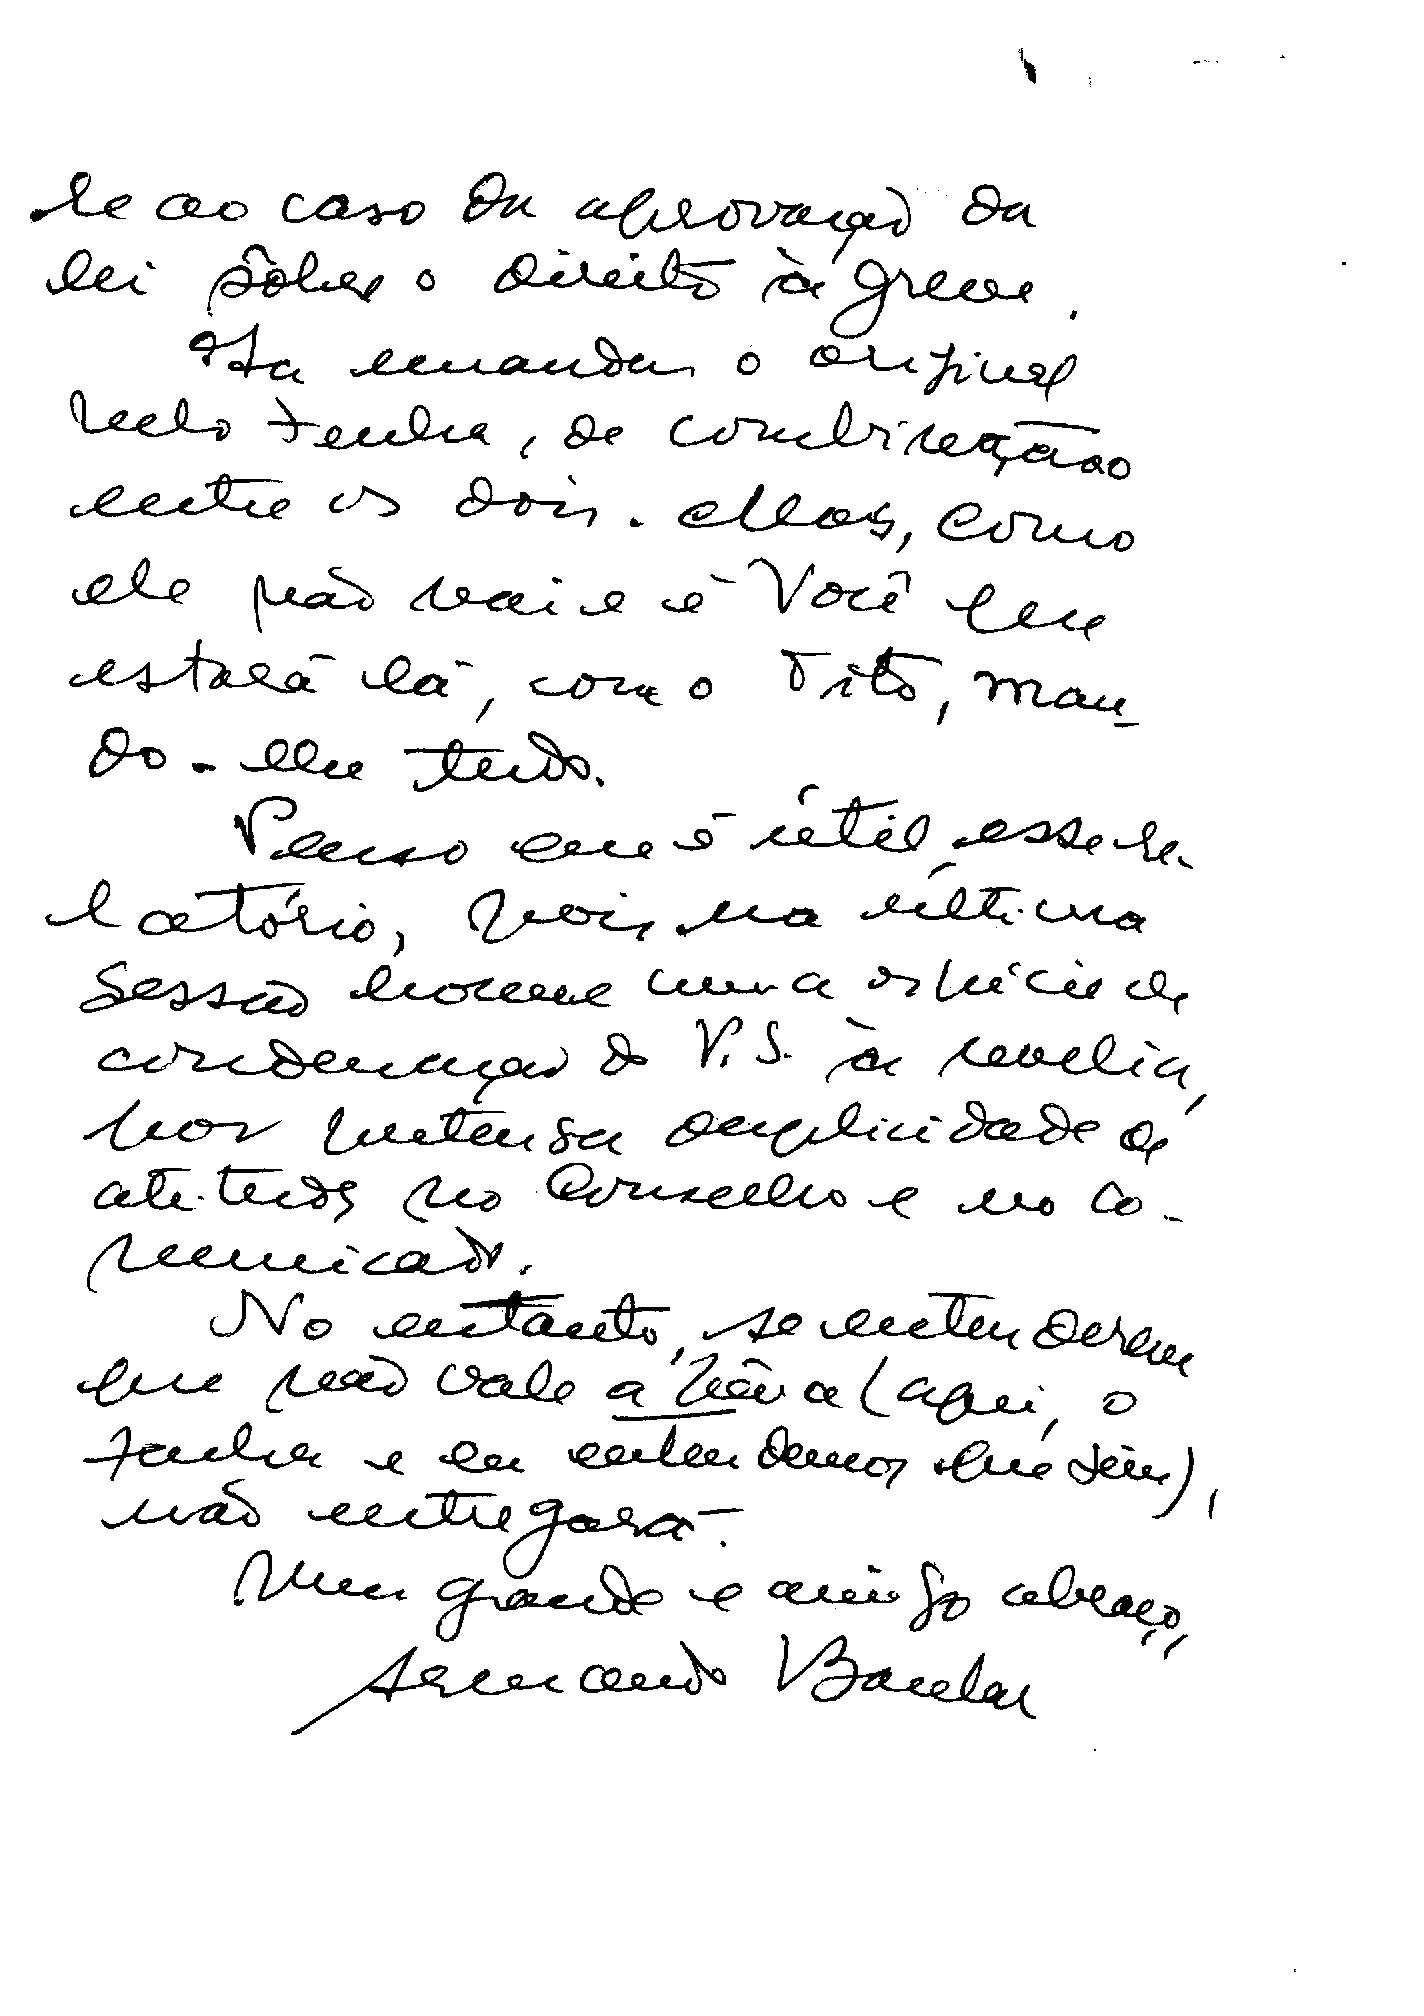 le ao caso da aprovação da
lei sôbre o direito à greve.
Ia mandar o original
pelo Tenha, de combinação
entre os dois. Mas, como
ele não vai e é Você que
estará lá, com o Tito, man-
do-lhe tudo.
Penso que é útil esse re-
latório, pois na última
sessão houve uma espécie de
condenação do P.S. à revelia,
por pretensa duplicidade de
atitudes no Conselho e no co-
municado.
No entanto, se entenderem
que não vale a pêna (aqui, o
Tenha e eu entendemos que sim),
não entregará.
Um grande e amigo abraço,
Armando Bacelar